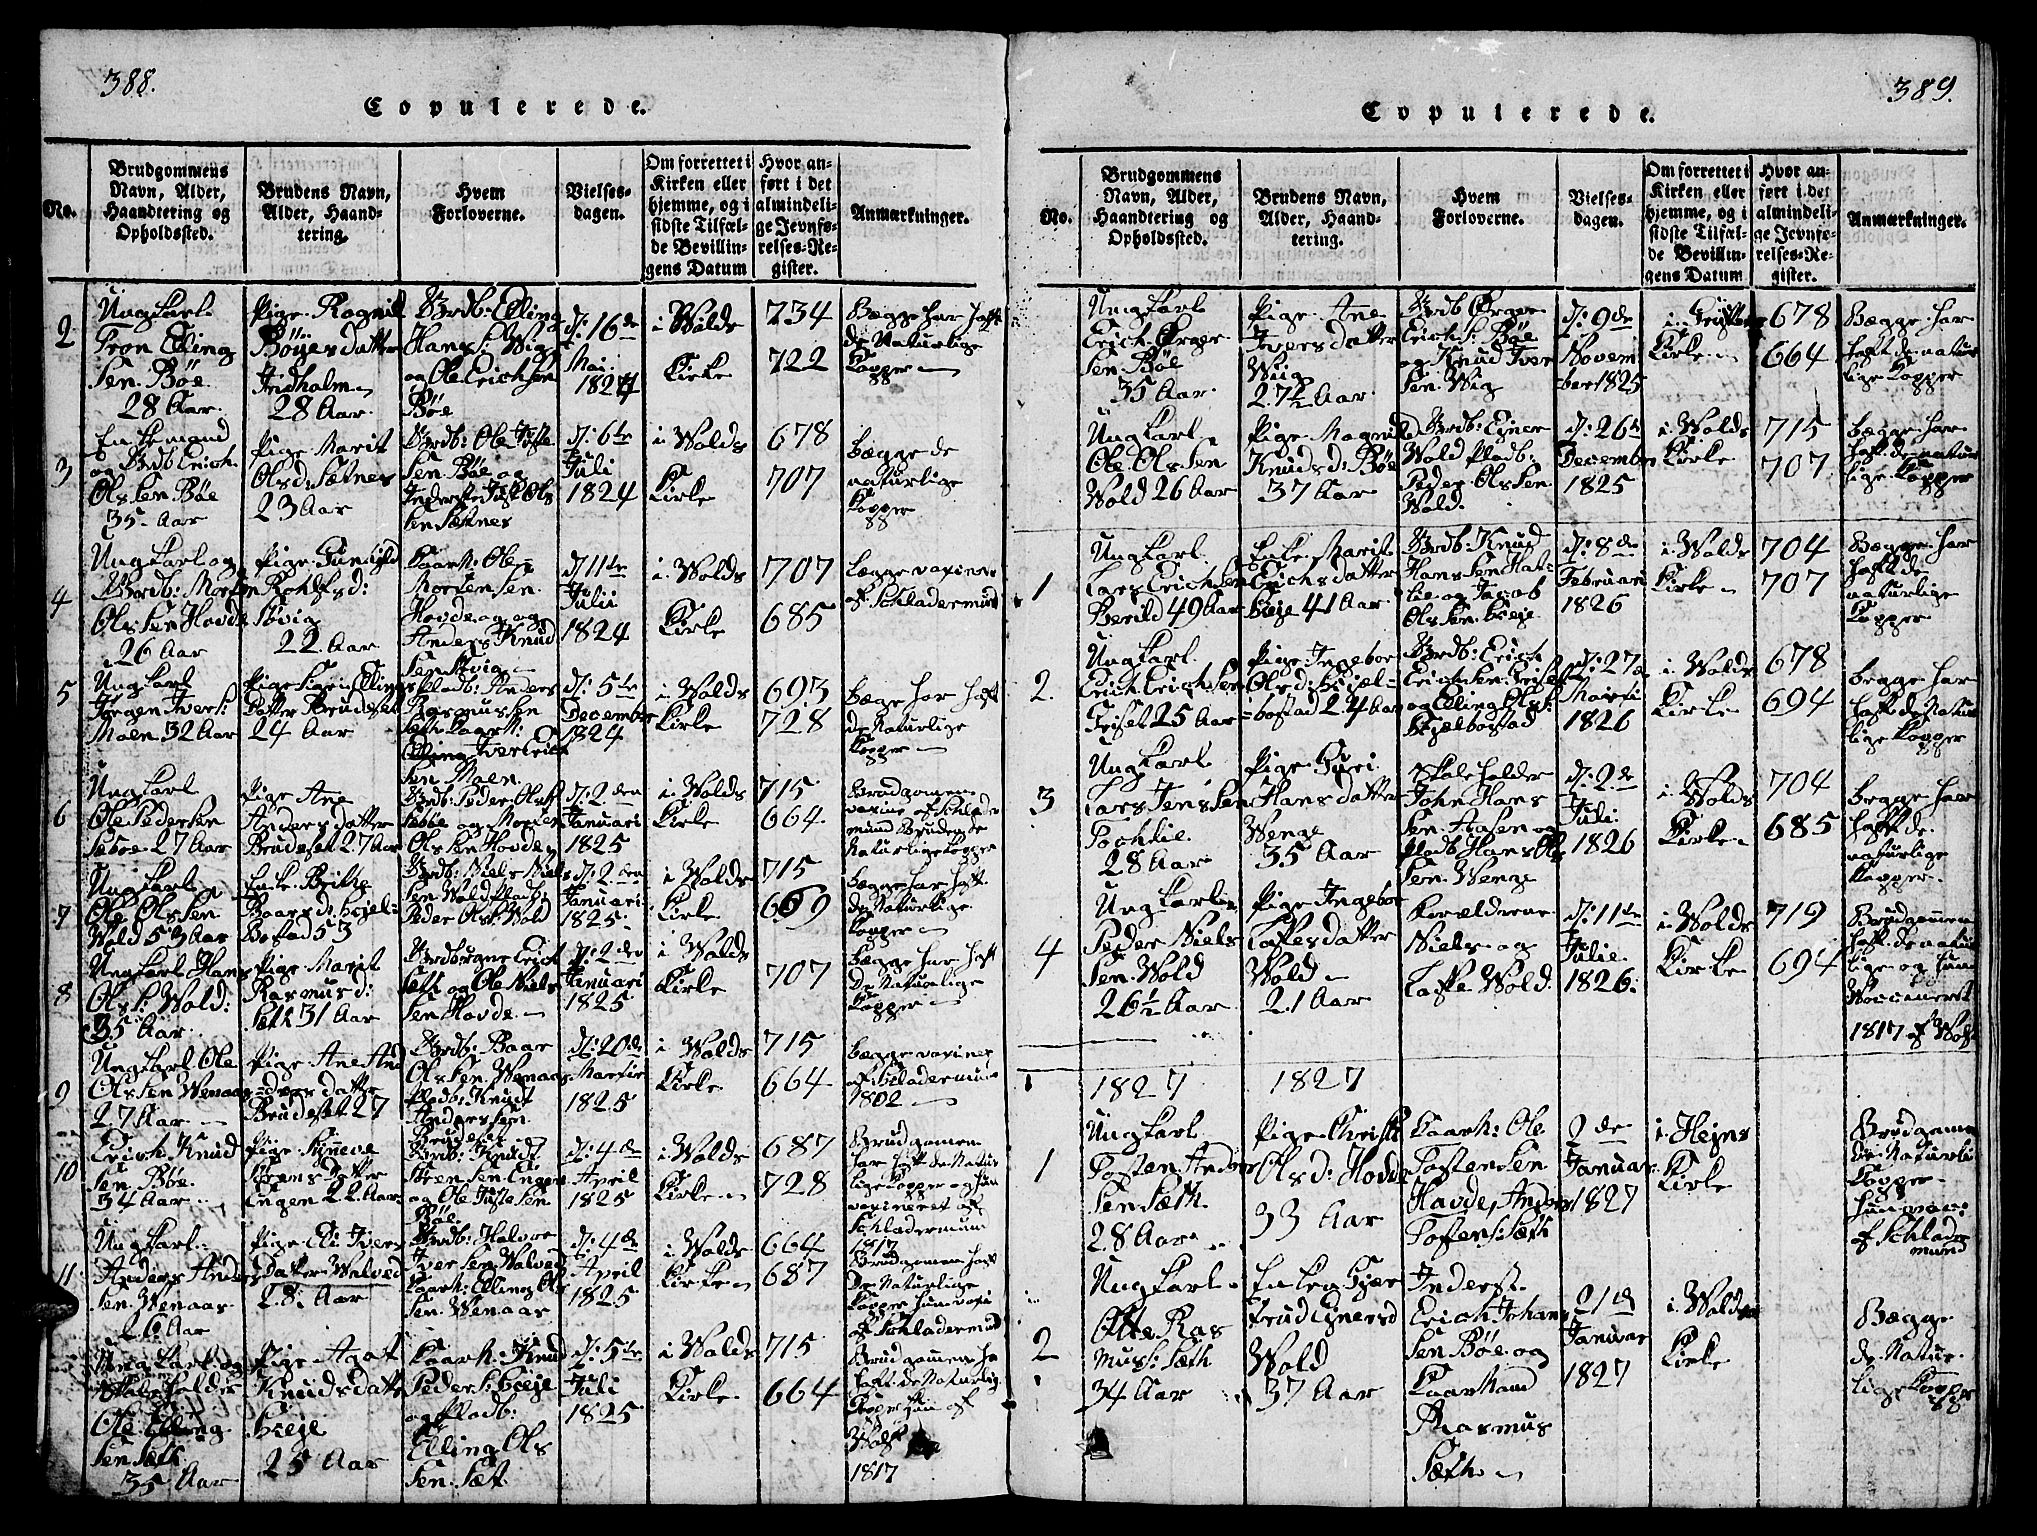 388.
Copulerede.
No.
Brudgommens
Navn, Alder,
Haandtering og
Opholdssted.
Brudens Navn,
Alder, Haand-
tering.
Hvem
Forloverne.
Vielses-
dagen.
Om forrettet i
Kirken eller
hjemme, og i
sidste Tilfæl-
de Bevillin-
gens Datum
Hvor an-
ført i det
almindeli-
ge Jevnfø-
relses-Re-
gister.
Anmærkninger.
2
Ungkarl
Tron Elling
Sen Böe
28 Aar.
Pige Ragnild
Böyesdatter
Indholm
28 Aar.
Brdb: Elling
Hans S: Wiig
og Ole Erichsen
Böe
d: 16de
Mai
1824
i Wolds
Kirke
734
722
Begge har haft
de Naturlige
Kopper
3
Enkemand
og Brdb Erich
Ols Sen Böe
35 Aar
Pige Marit
Olsd: Sætnes
23 Aar
Brdb: Ole
Sen Böe og
Sen Sætnes
d: 6te
Juli
1824
i Wolds
Kirke
678
707
begge de
naturlige
Kopper
4
Ungkarl og
Brdb: Morten
Ols Sen Hovde
26 Aar
Pige Gunild
Rohlfsd:
Sövig
22 Aar
Kaarm: Ole
Mortensen
Hovde og
Anders Knud
Sen
d 11te
Julii
1824
i Wolds
Kirke
707
685
begge vaxinere
af Schladermund
5
Ungkarl
Jörgen Ivers:
Moen 32 Aar
Pige Sigri Ellings
Datter Brudeset
24 Aar
Pladb: Anders
Rasmussen
Sen Moen
d: 5te
December
1824
i Wolds
Kirke
693
728
Begge har haft
de Naturlige
Kopper
6
Ungkarl
Ole Peders
Sæböe 27 Aar
Pige Ane
Anders datter
Brudeset 27 Aar
Brdb: Peder Ols
Sæböe og Morten
Ols Sen Hovde
d: 2den
Januari
1825
i Wolds
Kirke
715
664
Brudgomen
vaxine af Schlader
mund Brudende
Naturlige Kopper
7
Ungkarl
Ole Ols Sen
Wold 53 Aar
Enke Brithe
Baarsd: Hiel-
Bostad 53
Brdb: Niels Niels
Sen Wold Pladb:
Peder Ols: Wold
d: 2den
Januari
1825
i Wolds
Kirke
715
669
Begge har haft
de Naturlige
Kopper
8
Ungkarl Hans
Ols S: Wold:
35 Aar
Pige Marit
Rasmusd:
Sæth 31 Aar
Sæth og Ole Niels
Sen Hovde
d: 2den
Januari
1825
i Wolds
Kirke
707
Begge har haft
De Naturlige
Kopper
9
Ungkarl Ole
Ols Sen Wenaas
27 Aar
Pige Ane And
ders datter
Brudeset 27
Brdb: Baar
Ols Sen Wenaas
Pladb: Knud
Anderssen
Brudeset
d: 20de
Martii
1825
i Wolds
Kirke
715
664
begge vaxiner
af Schladermun
1802
10
Erich Knud
Sen Böe
34 Aar
Pige Synneve
Steens Datter
Engen 22 Aar
Brdb: Knud
Steen Sen Engen
og Ole
Böe
d: 4de
April
1825
i Wolds
Kirke
687
728
Brudgomen
har haft de Natur
lige Kopper og hun
vaxineret af
Schladermun
1817
11
Ungkarl
Anders Anders
Sen Wenaas
26 Aar
Pige Eli Ivers
datter Walved
28 Aar
Brdb: Halvor
Iver Sen Walved
Kaarm: Elling Ols
Sen Wenaas
d: 4de
April
1825
i Wolds
Kirke
664
687
Brudgomen haft
De Naturlige
Kopper hun vaxi
af Schladermund
Ungkarl og
Skoleholder
Ole Elling
Sen Sæth
35 Aar
Pige Agat
Knudsdatter
Heje
25 Aar
Kaarm: Knud
Peder S: Heje
og Pladb:
Elling Ols
Sen Sæt
d: 5te
Juli
1825
i Wolds
Kirke
715
664
Brudgommen ha
haft de Naturlig
Kopper hun af
Wolf
1817
389.
Copulerede.
No.
Brudgommens
Navn, Alder,
Haandtering og
Opholdssted.
Brudens Navn,
Alder, Haand-
tering.
Hvem
Forloverne.
Vielses-
dagen.
Om forrettet i
Kirken eller
hjemme, og i
sidste Tilfæl-
de Bevillin-
gens Datum
Hvor an-
ført i det
almindeli-
ge Jevnfø-
relses-Re-
gister.
Anmærkninger.
Ungkarl
Erich
Sen Böe
35 Aar
Pige Ane
Iversdatter
Wiig
27½ Aar
Brdb
Erich S: Böe
og Knud Iver
Sen Wig
d: 9de
Novem
ber 1825
i
Kirke
678
664
Begge har
haft de natur
lige Kopper
Ungkarl
Ole Ols Sen
Wold 26 Aar
Pige Magnild
Knudsd: Böe
37 Aar
Brdb: Einer
Wold Pladb:
Peder Ols Sen
Wold.
d: 26de
December
1825
i Wolds
Kirke
715
707
begge har
haft de natur
lige Kopper
1
Ungkarl
Lars Erich Sen
Berild 49 Aar
Enke Marit
Erichsdatter
Heje 41 Aar.
Brdb: Knud
Hans Sen Hat-
lie og Jacob
Ols Sen Heje
d: 8de
Februari
1826
i Wolds
Kirke
704
707
Begge har
haft de
naturlige
Kopper
2.
Ungkarl
Erich Erich Sen
25 Aar
Pige Ingebor
Olsd: Hiel-
bostad 24 Aar
Brdb: Erich
Erich Sen
og Elling Ols:
Hielbostad
d: 27de
Martii
1826
i Wolds
Kirke
678
694
begge har
haft de Natur
lige Kopper
3
Ungkarl
Lars Jens Sen
28 Aar
Pige Guri
Hansdatter
Wenge
35 Aar
Skoleholder
John Hans
Sen Aasen og
Pladb Hans Ols
Sen Wenge
d: 2de
Juli
1826
i Wolds
Kirke
704
685
begge har
haft de
naturlige
Kopper.
4
Ungkarl
Peder Niels
Sen Wold
26½ Aar
Pige Ingebor
Laffesdatter
Wold
21 Aar
Forældrene
Niels og
Laffe Wold.
d: 11te
Julie
1826
i Wolds
Kirke
719
694
Brudgommen
haft de natur
lige og hun
Vaccineret
1817 af Wolf
1827
1827
1
Ungkarl
Tosten Anders
Sen Sæth
28 Aar
Pige Christi
Olsd: Hovde
33 Aar
Kaarm: Ole
Tosten Sen
Hovde, Anders
Tostens: Sæth
2de
Januar
1827
i Hejns
Kirke
Brudgomen
de Naturli
Kopper
hun
af Schlader
mund
2
Ungkarl
Otte Ras
mus: Sæth
34 Aar
Enke Gjer
trud Einersd
Wold
37 Aar
Inderst
Erich Johans
Sen Böe og
Kaarmand
Rasmus
Sæth
21de
Januar
1827
i Wolds
Kirke
Begge
de Natur
lige Kopper